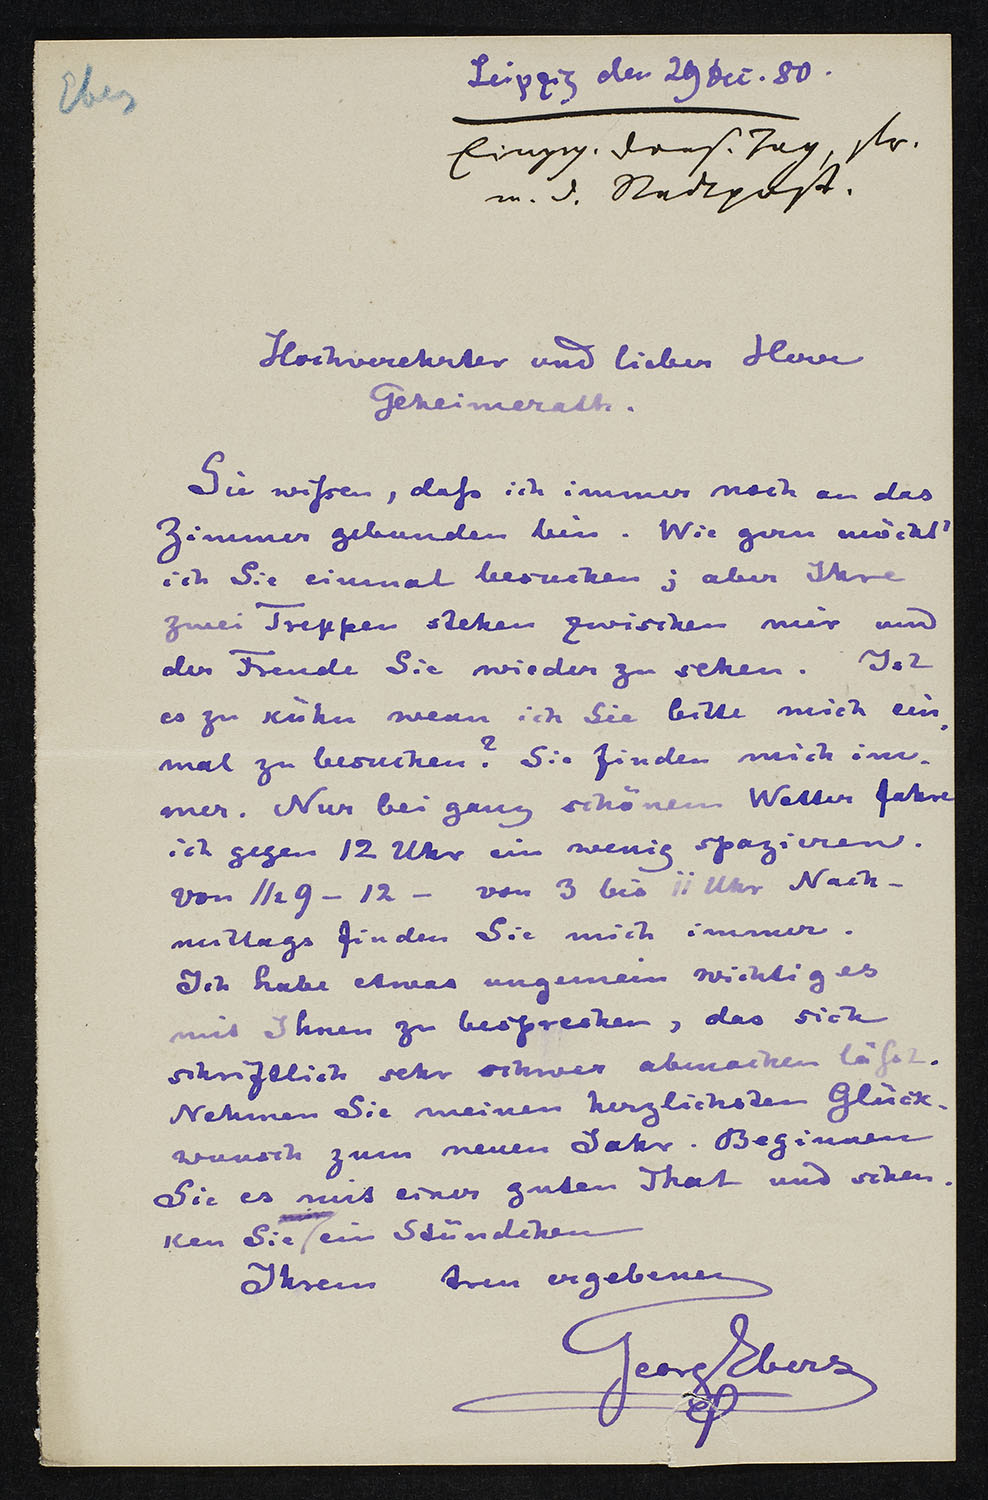 Ebers
Leipzig den 29 Dec. 80.
Eingeg. dens. Tag,
m. d. Stadtpost.
Hochverehrter und lieber Herr
Geheimerath.
Sie wißen, daß ich immer noch an das
Zimmer gebunden bin. Wie gern möcht'
ich Sie einmal besuchen; aber Ihre
zwei Treppen stehen zwischen mir und
der Freude Sie wieder zu sehen. Ist
es zu kühn wenn ich Sie bitte mich ein-
mal zu besuchen? Sie finden mich im-
mer. Nur bei ganz schönem Wetter fahre
ich gegen 12 Uhr ein wenig spazieren.
von 1/2 9 – 12 – von 3 bis 11 Uhr Nach-
mittags finden Sie mich immer.
Ich habe etwas ungemein wichtiges
mit Ihnen zu besprechen, das sich
schriftlich sehr schwer abmachen läßt.
Nehmen Sie meinen herzlichsten Glück-
wunsch zum neuen Jahr. Beginnen
Sie es mit einer guten That und schen-
ken Sie ein Stündchen
Ihrem treu ergebenen
Georg Ebers